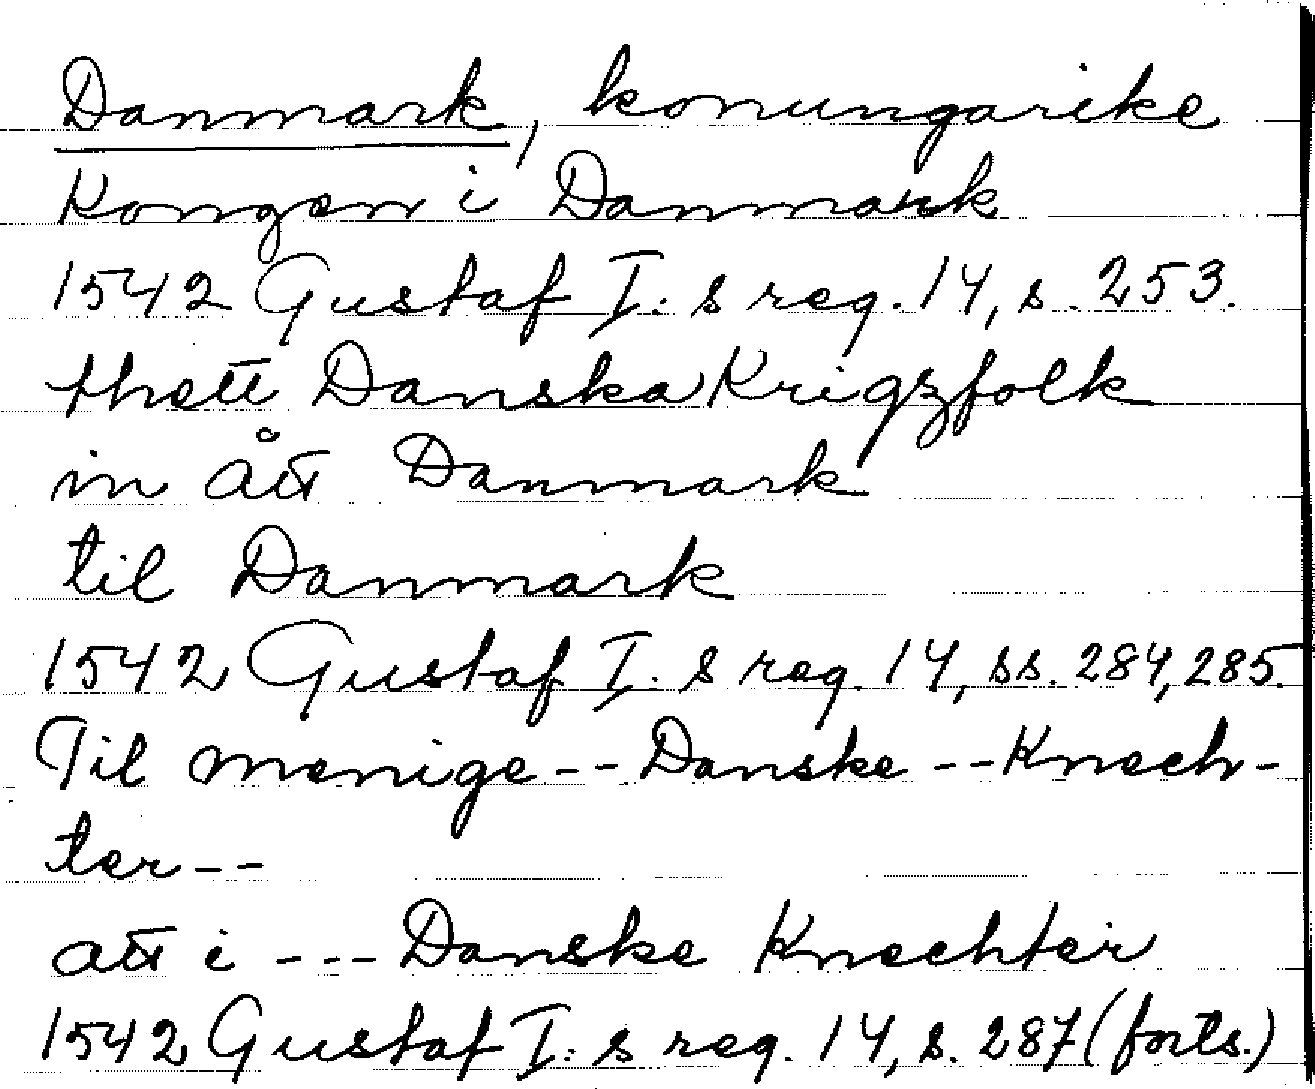 Danmark, konungarike
Kongen i Danmark
1542 Gustaf I:s reg. 14, s. 253.
thett Danska Krigzfolk
inått Danmark
til Danmark
1542 Gustaf I:s reg. 14, ss. 284, 285.
Til menige -- Danske -- Knech-
ter --
att i --- Danske Knechter
1542 Gustaf I:s reg. 14, s. 287 (forts.)